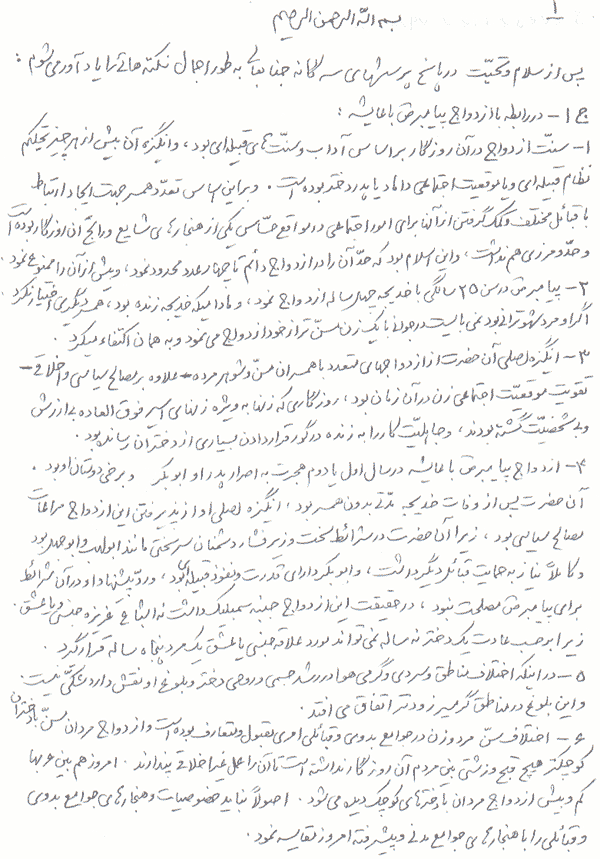 ۱
بسم الله الرحمن الرحیم
پس از سلام و تحیّت در پاسخ پرسشهای سه گانه جنابعالی به طور اجمال نکته هائی را یادآور می شوم :
ج ۱ – در رابطه با ازدواج پیامبر (ص) با عایشه :
۱- سنّت ازدواج در آن روزگار بر اساس آداب و سنّت های قبیله ای بود ، و انگیزه آن بیش از هر چیز تحکیم
نظام قبیله ای و یا موقعیت اجتماعی داماد یا پدر دختر بوده است . و بر این اساس تعدّد همسر جهت ایجاد ارتباط
با قبائل مختلف و کمک گرفتن از آنها برای امور اجتماعی در مواقع حسّاس یکی از هنجارهای شایع و رایج آن روزگار بوده است
و حدّ و مرزی هم نداشت ، و این اسلام بود که حدّ آن را در ازدواج دائم تا چهار عدد محدود نمود ، و بیش از آن را ممنوع نمود .
۲- پیامبر (ص) در سن ۲۵ سالگی با خدیجه چهل ساله ازدواج نمود ، و مادامیکه خدیجه زنده بود ، همسر دیگری اختیار نکرد .
اگر او مرد شهوترانی بود نمی بایست در جوانی با یک زن مسنّ تر از خود ازدواج می نمود و به همان اکتفاء میکرد .
۳- انگیزه اصلی آن حضرت از ازدواجهای متعدد با همسران مسنّ و شوهر مرده – علاوه بر مصالح سیاسی و اخلاقی –
تقویت موقعیّت اجتماعی زن در آن زمان بود ، روزگاری که زنها به ویژه زنهای اسیر فوق العاده بی ارزش
و بی شخصیّت گشته بودند ، و جاهلیّت کار را به زنده در گور قرار دادن بسیاری از دختران رسانده بود .
۴- ازدواج پیامبر (ص) با عایشه در سال اول یا دوم هجرت به اصرار پدر او ابوبکر و برخی دوستان او بود .
آن حضرت پس از وفات خدیجه مدّتی بدون همسر بود ، انگیزه اصلی او از پذیرفتن این ازدواج مراعات
مصالح سیاسی بود ، زیرا آن حضرت در شرائط سخت و زیر فشار دشمنان سرسختی مانند ابولهب و ابوجهل بود
و کاملاً نیاز به حمایت قبائل دیگر داشت ، و ابوبکر دارای قدرت و نفوذ قبیله ای بود ، و ردّ پیشنهاد او در آن شرائط
برای پیامبر (ص) مصلحت نبود ، در حقیقت این ازدواج جنبه سمبلیک داشت نه اشباع غریزه جنسی و یا عشق .
زیرا بر حسب عادت یک دختر نه ساله نمی تواند مورد علاقه جنسی یا عشق یک مرد پنجاه ساله قرار گرد .
۵- در اینکه اختلاف مناطق و سردی و گرمی هوا در رشد جسمی و روحی دختر و بلوغ او نقش دارد شکّی نیست
و این بلوغ در مناطق گرمسیر زودتر اتفاق می افتد .
۶- اختلاف سنّ مرد و زن در جوامع بدوی و قبائلی امری مقبول و متعارف بوده است و ازدواج مردان مسنّ با دختران
کوچکتر هیچ قبح و زشتی بین مردم آن روزگار نداشته است تا آن را عمل غیر اخلاقی پندارند . امروز هم بین عربها
کم و بیش ازدواج مردان با دخترهای کوچک دیده می شود . اصولاً نباید خصوصیات و هنجارهای جوامع بدوی
و قبائلی را با هنجارهای جوامع مدنی و پیشرفته امروز مقایسه نمود .